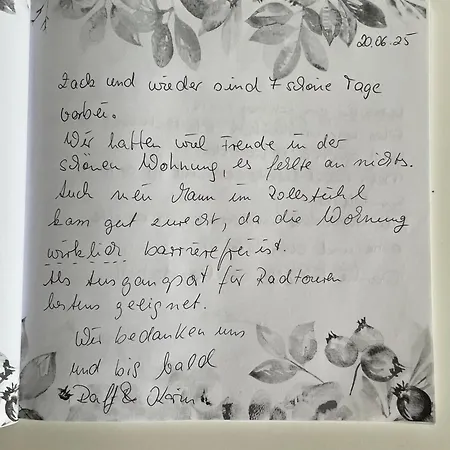 20.06.25
Zack und wieder sind 7 schöne Tage
vorbei.
Wir hatten viel Freude in der
schönen Wohnung, es fehlte an nichts.
Auch mein Mann im Rollstuhl
kam gut zurecht, da die Wohnung
wirklich barrierefrei ist.
Als Ausgangsort für Radtouren
bestens geeignet.
Wir bedanken uns
und bis bald
Ralf & Karin